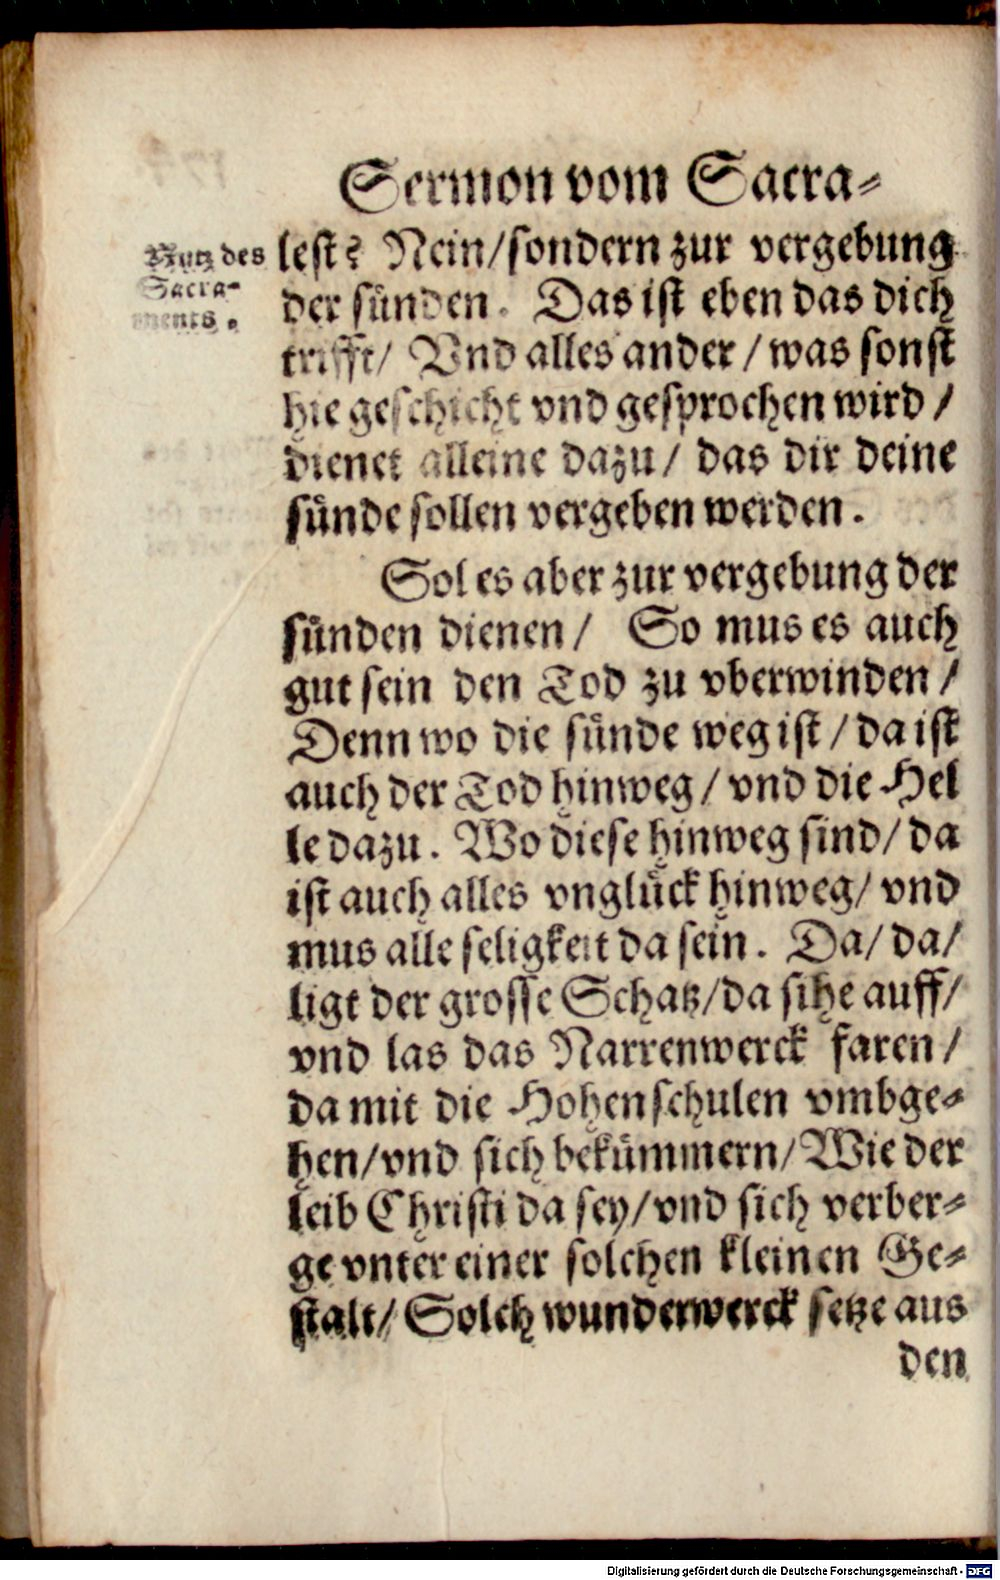 Sermon vom Sacra-
Nutz des
Sacra-
ments.
lest? Nein/sondern zur vergebung
der sünden. Das ist eben das dich
trifft/ Vnd alles ander/was sonst
hie geschicht vnd gesprochen wird/
dienet alleine dazu/ das dir deine
sünde sollen vergeben werden.
Sol es aber zur vergebung der
sünden dienen/ So mus es auch
gut sein den Tod zu vberwinden/
Denn wo die sünde weg ist/da ist
auch der Tod hinweg/vnd die Hel
le dazu. Wo diese hinweg sind/da
ist auch alles vnglück hinweg/vnd
mus alle seligkeit da sein. Da/da/
ligt der grosse Schatz/da sihe auff/
vnd las das Narrenwerck faren/
da mit die Hohenschulen vmbge-
hen/vnd sich bekümmern/Wie der
leib Christi da sey/vnd sich verber-
ge vnter einer solchen kleinen Ge-
stalt/Solch wunderwerck setze aus
den
Digitalisierung gefördert durch die Deutsche Forschungsgemeinschaft - DFG